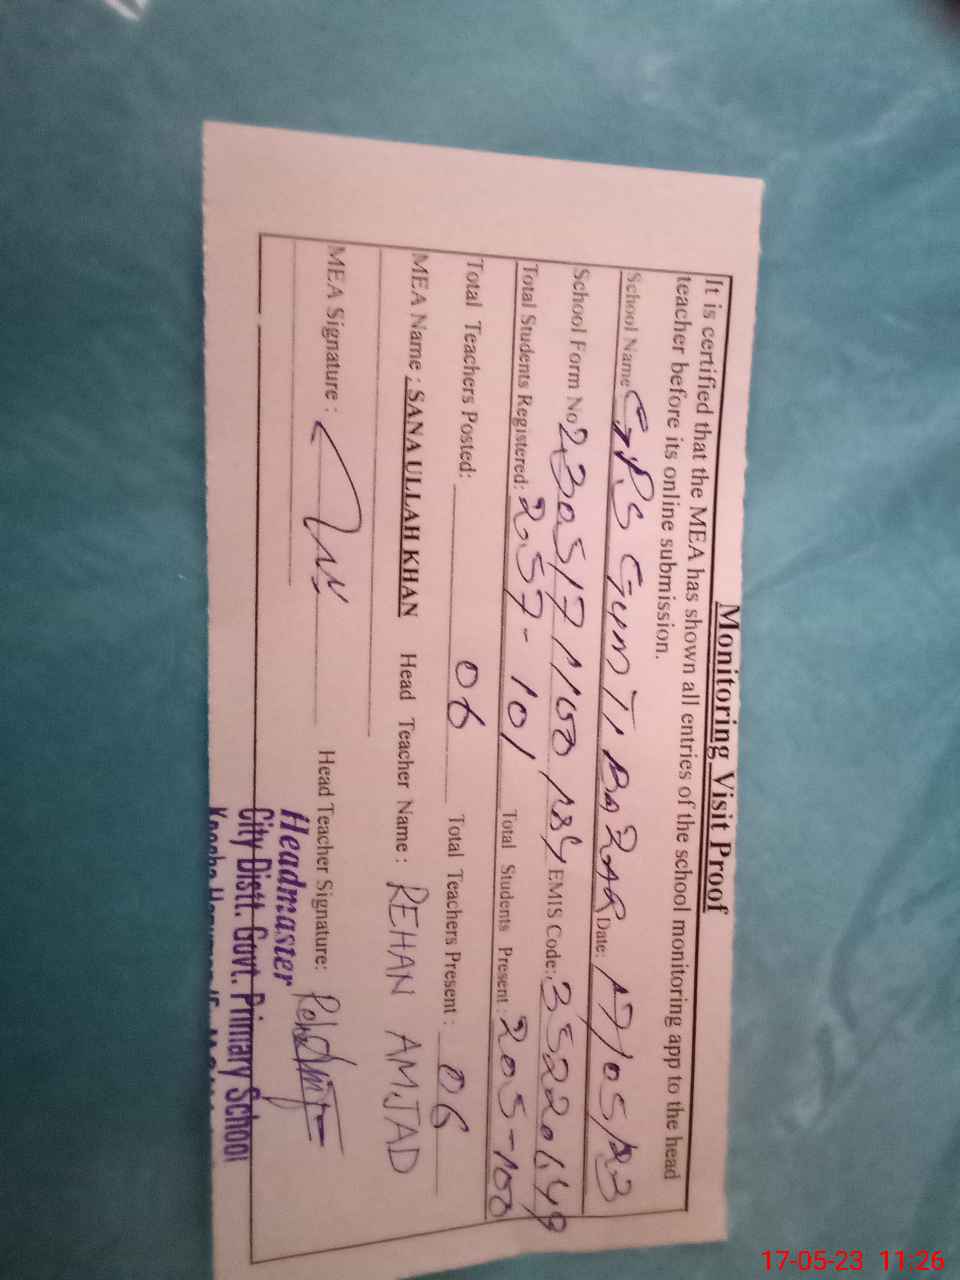 Monitoring Visit Proof
It is certified that the MEA has shown all entries of the school monitoring app to the head
teacher before its online submission.
School Name GPS Gumti Bazar Date: 17/05/23
School Form No 2305171100184 EMIS Code: 35220649
Total Students Registered: 257-101 Total Students Present: 205-100
Total Teachers Posted: 06 Total Teachers Present: 06
MEA Name : SANA ULLAH KHAN Head Teacher Name : REHAN AMJAD
MEA Signature : Head Teacher Signature:
Headmaster
City Distt. Govt. Primary School
17-05-23 11:26